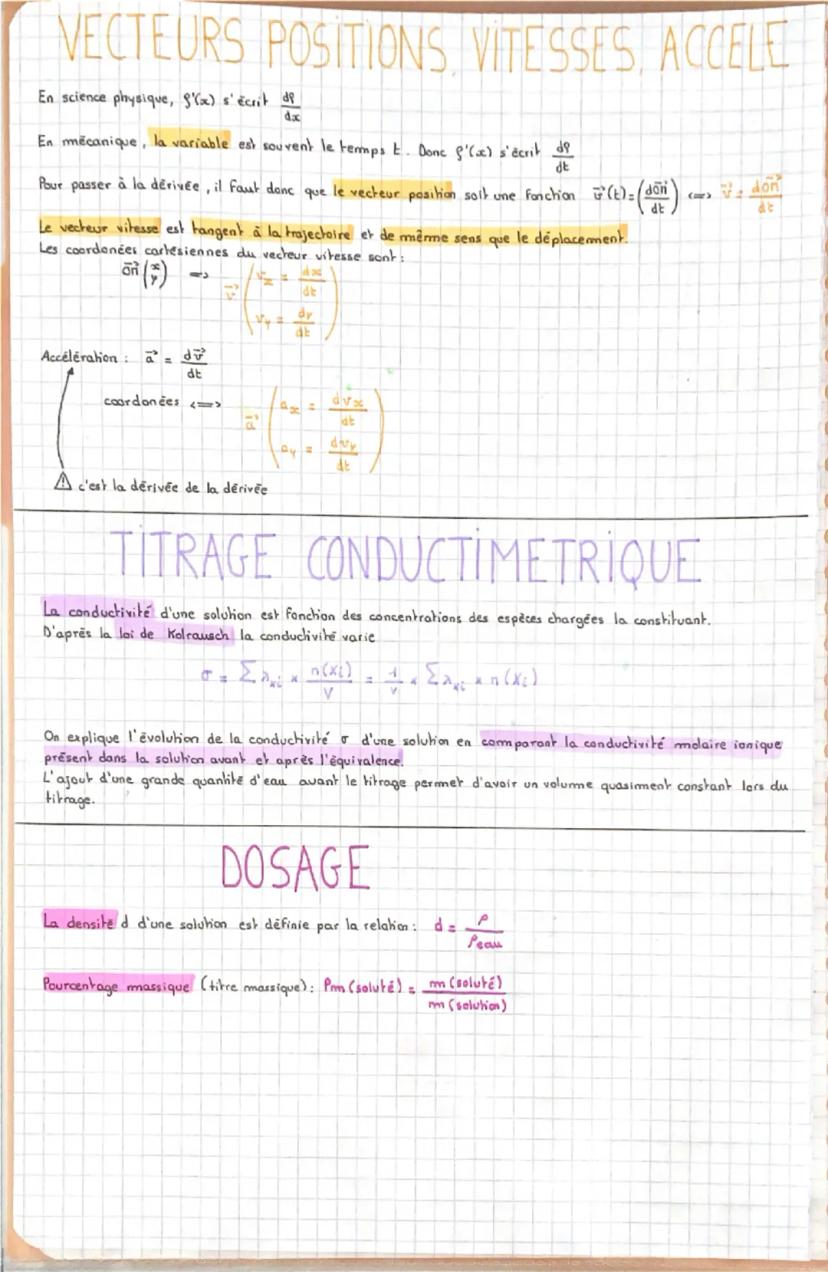 VECTEURS POSITIONS, VITESSES, ACCELE
En science physique, f'(x) s'écrit df/dx
En mécanique, la variable est souvent le temps t. Donc f'(x) s'écrit df/dt
Pour passer à la dérivée, il faut donc que le vecteur position soit une fonction v⃗(t) = (dOM⃗/dt) <=> v⃗ = dOM⃗/dt
Le vecteur vitesse est tangent à la trajectoire et de même sens que le déplacement.
Les coordonées cartésiennes du vecteur vitesse sont :
OM⃗ (x y) => v⃗ (vx = dx/dt
vy = dy/dt)
Accélération : a⃗ = dv⃗/dt
coordonées <=> a⃗ (ax = dvx/dt
ay = dvy/dt)
⚠ c'est la dérivée de la dérivée
TITRAGE CONDUCTIMETRIQUE
La conductivité d'une solution est fonction des concentrations des espèces chargées la constituant.
D'après la loi de Kolrausch la conductivité varie
σ = Σ λxi × n(Xi)/V = 1/V × Σ λxi × n(Xi)
On explique l'évolution de la conductivité σ d'une solution en comparant la conductivité molaire ionique
présent dans la solution avant et après l'équivalence.
L'ajout d'une grande quantité d'eau avant le titrage permet d'avoir un volume quasiment constant lors du
titrage.
DOSAGE
La densité d d'une solution est définie par la relation : d = ρ/ρeau
Pourcentage massique (titre massique) : Pm (soluté) = m (soluté)/m (solution)